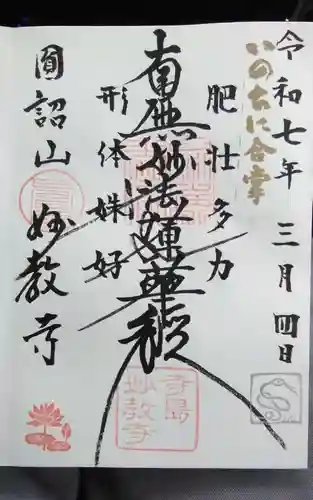 令和七年 三月四日
いのちに合掌
肥壮多力
南無妙法蓮華経
形体姝好
圓詔山 妙教寺
寺島
妙教寺